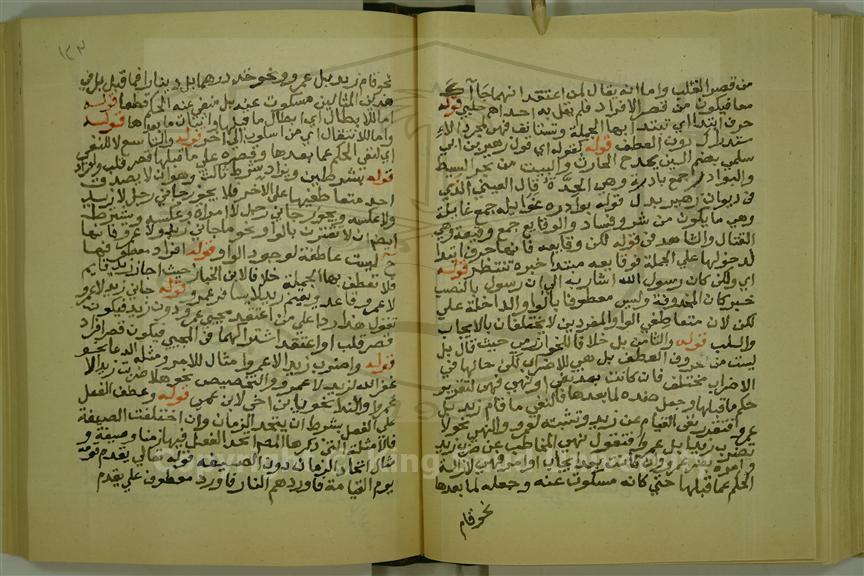 من قصر القلب واما انه يقال لمن اعتقد انهما جاآك
معا فيكون من قصر الافراد فلم يقل به احد اهم حلبي قوله
حرف ابتدا اي تبتدا بها الجملة وتستانف فهي لمجرد الا
ستدراك دون العطف قوله كقوله اي قول زهير بن ابي
سلمى بضم السين يمدح الحارث والبيت من بحر البسيط
والبوادر جمع بادرة وهي الحدة قال العيني الذي
في ديوان زهير بدل قوله بوادره غوايله جمع غايلة
وهي ما يكون من شر وفساد والوقايع جمع وقيعة وهي
القتال والشاهد في قوله لكن وقايعه فانها حرف ابتدا
لدخولها على الجملة فوقايعه مبتدا خبره تنتظر قوله
اي ولكن كان رسول الله اشار به الى ان رسول بالنصب
خبر كان المحذوفة وليس معطوفا بالواو الداخلة على
لكن لان متعاطفي الواو المفردين لا يختلفان بالايجاب
والسلب قوله والثامن بل خلافا للخوارزمي حيث قال بل
ليست من حروف العطف بل هي للاضراب لكن حالها في
الاضراب مختلف فان كانت بعد نفي او نهي فهي لتقرير
حكم ما قبلها وجعل ضده لما بعدها فالنفي ما قام زيد بل
عمرو فتقرر نفي القيام عن زيد وتثبته لعمرو والنهي نحو لا
تضرب زيدا بل عمرو فتقول نهي المخاطب عن ضرب زيد
وامره بضرب عمرو وان كانت بعد ايجاب او امر فهي لازالة
الحكم عما قبلها حتى كانه مسكوت عنه وجعله لما بعدها
نحو قام
١٣٣
نحو قام زيد بل عمرو ونحو خذ درهما بل دينارا فما قبل بل في
هذين المثالين مسكوت عنه بل منفي عنه الحكم قطعا قوله
اما للابطال اي ابطال ما قبلها واثبات ما بعدها قوله
واما للانتقال اي من اسلوب الى اخر قوله والتاسع لا للنفي
اي لنفي الحكم عما بعدها وقصره على ما قبلها قصر قلب وافراد
قوله بشرطين ويزاد شرط ثالث وهو ان لا يصدق
احد متعاطفيها على الاخر فلا يجوز جاني رجل لا زيد
ولا عكسه ويجوز جاني رجل لا امراة وعكسه ويشترط
ايضا ان لا تقترن بالواو نحو ما جاني زيد ولا عمرو فانها
ليست عاطفة لوجود الواو قوله افراد معطوفيها
فلا تعطف بها الجملة خلافا لابن الخباز حيث اجاز زيد قايم
لا عمرو قاعد ويقيم زيد لا يسافر عمرو قوله جاني زيد لا عمرو
تقول هذا ردا على من اعتقد مجي عمرو دون زيد فيكون
قصر قلب او اعتقد اشتراكهما في المجي فيكون قصر افراد
قوله واضرب زيدا لا عمروا مثال للامر ومثله الدعا نحو
غفر الله لزيد لا عمرو والتحضيض نحو هلا ضربت زيدا لا
عمرا والندا نحو يا ابن اخي لا ابن عمي قوله وعطف الفعل
على الفعل بشرط ان يتحد الزمان وان اختلفت الصيغة
فالامثلة التي ذكرها المص اتحد الفعل فيها زمنا وصيغة و
مثال اتحاد الزمان دون الصيغة قوله تعالى يقدم قومه
يوم القيامة فاوردهم النار فاورد معطوف على يقدم